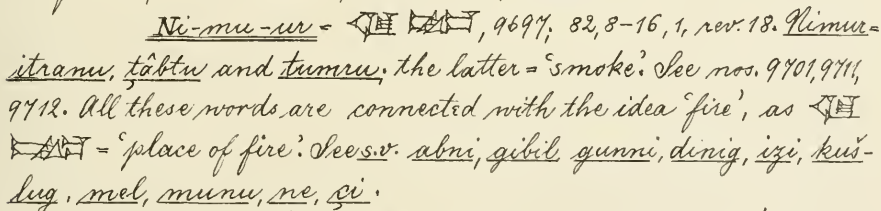 Ni-mu-ur = 𒆠𒉈, 9697; 82, 8-16, 1, rev. 18. Nimur =
itranu, ṭâbtu and tumru; the latter = 'smoke'. See nos. 9701, 9711,
9712. All these words are connected with the idea 'fire', as 𒆠
𒉈 = 'place of fire'. See s.v. abni, gibil, gunni, dinig, izi, kuš-
lug, mel, munu, ne, çi.